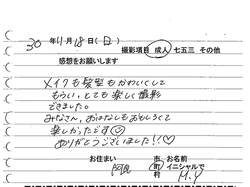 30年11月18日(日)
撮影項目 成人 七五三 その他
感想をお願いします
メイクも髪型もかわいくして
もらい、とても楽しく撮影
できました。
みなさん、おはなしもおもしろくて
楽しかったです♡
ありがとうございました!!♡
お住まい 市町村 お名前 イニシャルで
阿見 M.Y